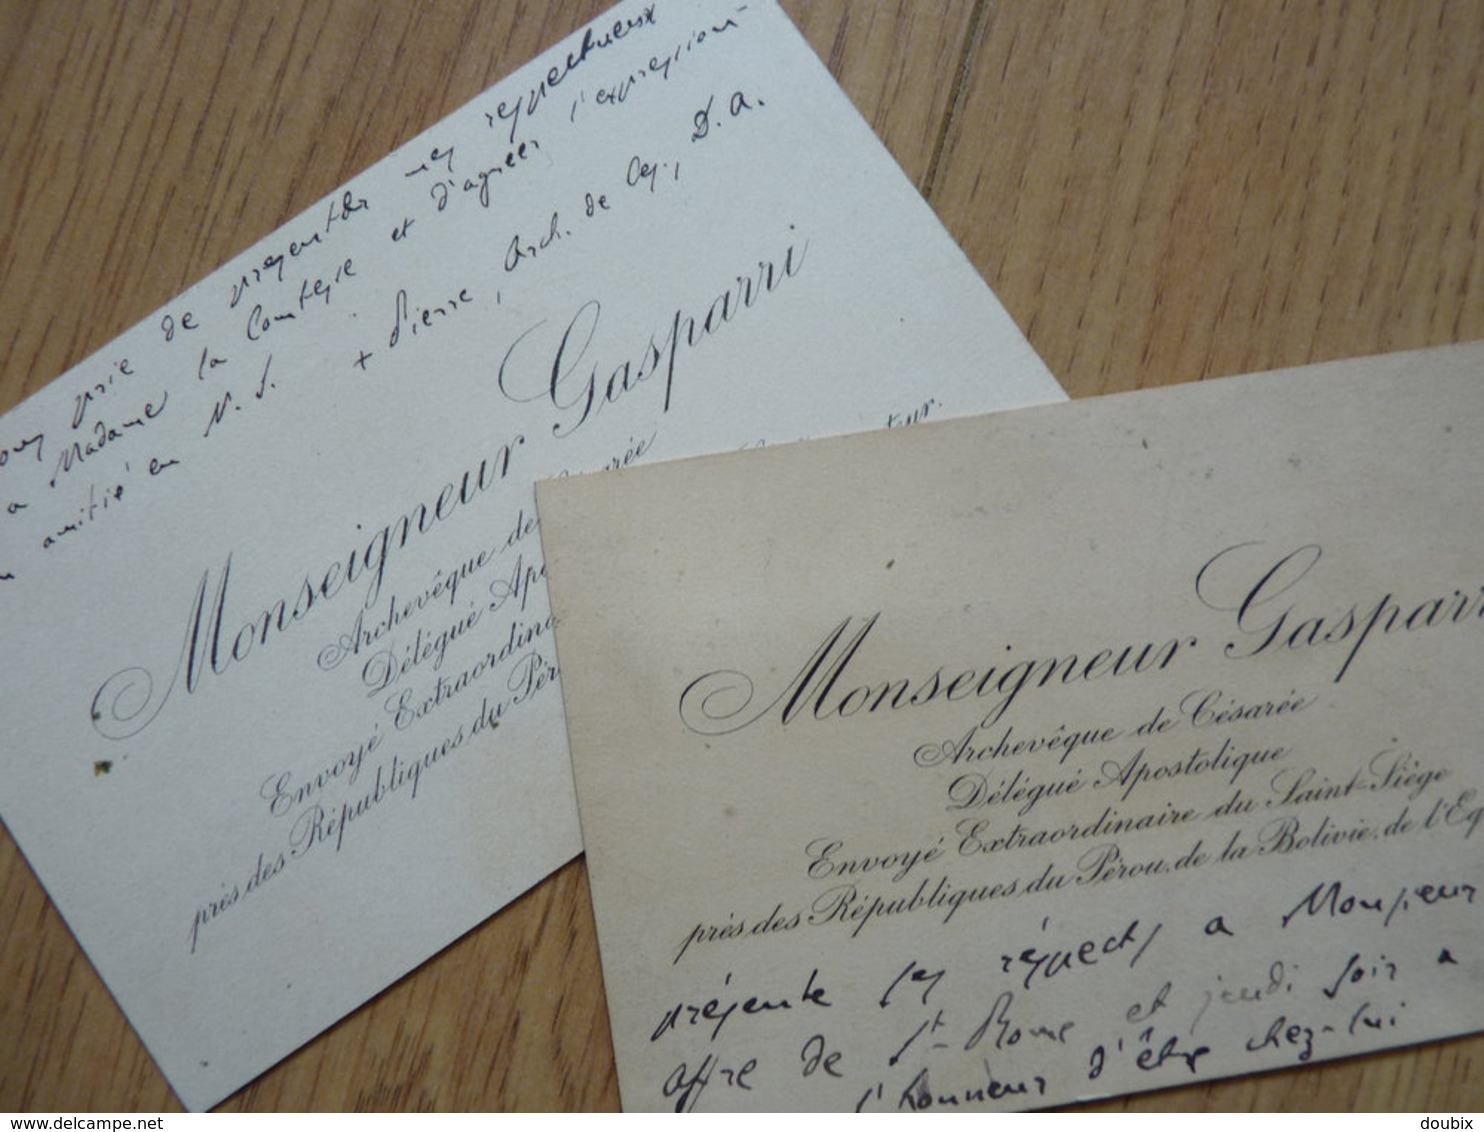 vous prie de présenter mes respectueux
a Madame la Comtesse et d'agréer l'expression
amitié en N. S. + Pierre, Arch. de Ces., D. A.
Monseigneur Gasparri
Archevêque de
Délégué Apo
Envoyé Extraordina
près des Républiques du Pér
Monseigneur Gasparr
Archevêque de Césarée
Délégué Apostolique
Envoyé Extraordinaire du Saint-Siège
près des Républiques du Pérou, de la Bolivie, de l'Eq
présente ses respects a Monsieur
offre de St Rome et jeudi soir a
l'honneur d'être chez-lui
delcampe.net
doubix